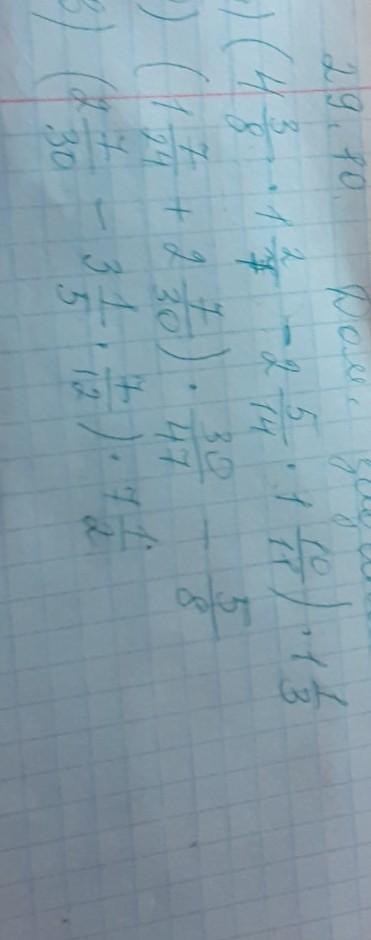 29.10. Дом.
) (4 3/8 · 1 2/7 - 2 5/14 · 1 10/11) · 1 1/3
) (1 7/24 + 2 7/30) · 30/47 - 5/8
) (2 7/30 - 3 1/5 · 7/12) · 7 1/2